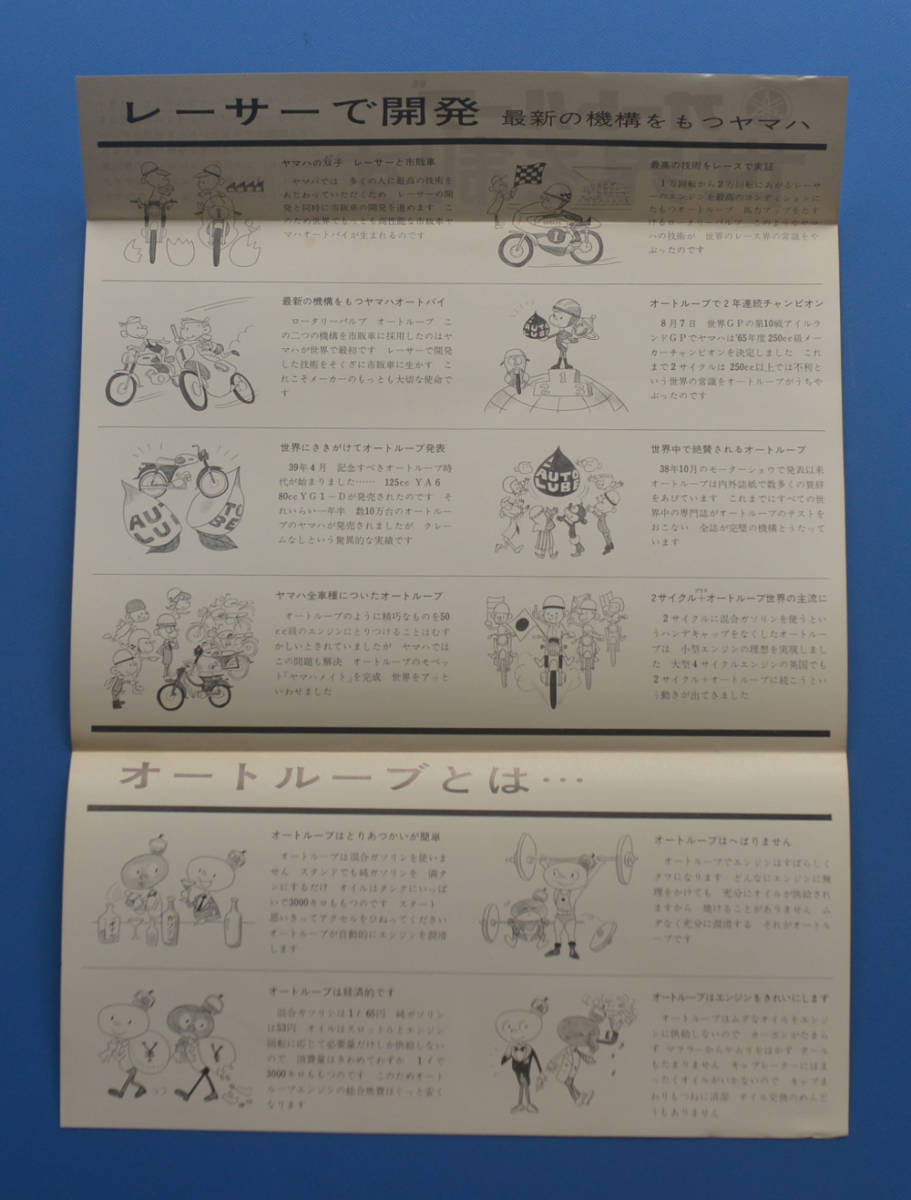 レーサーで開発 最新の機構をもつヤマハ
ヤマハの双子 レーサーと市販車
ヤマハでは 多くの人に最高の技術を
あじわっていただくため レーサーの開
発と同時に市販車の開発を進めます こ
のため世界でもっとも高性能な市販車ヤ
マハオートバイが生まれるのです
最高の技術をレースで実証
1万回転から2万回転にあがるレーサ
ーのエンジンを最高のコンディションに
たもつオートルーブ 馬力アップをたす
けるロータリーバルブ このようなヤマ
ハの技術が 世界のレース界の常識をや
ぶったのです
最新の機構をもつヤマハオートバイ
ロータリーバルブ オートルーブ こ
の二つの機構を市販車に採用したのはヤ
マハが世界で最初です レーサーで開発
した技術をそくざに市販車に生かす こ
れこそメーカーのもっとも大切な使命で
す
オートルーブで2年連続チャンピオン
8月7日 世界GPの第10戦アイルラ
ンドGPでヤマハは'65年度250cc級メー
カーチャンピオンを決定しました これ
まで2サイクルは250cc以上では不利と
いう世界の常識をオートルーブがうちや
ぶったのです
AUTO LUBE
世界にさきがけてオートルーブ発表
39年4月 記念すべきオートルーブ時
代が始まりました…… 125cc YA6
80cc YG1−Dが発売されたのです そ
れいらい一年半 数10万台のオートルー
ブのヤマハが発売されましたが クレー
ムなしという驚異的な実績です
AUTO LUBE
世界中で絶賛されるオートルーブ
38年10月のモーターショウで発表以来
オートルーブは内外誌紙で数多くの賛辞
をあびています これまでにすべての世
界中の専門誌がオートルーブのテストを
おこない 全誌が完璧の機構とうたって
います
AUTO LUBE
ヤマハ全車種についたオートルーブ
オートルーブのように精巧なものを50
cc級のエンジンにとりつけることはむず
かしいとされていましたが ヤマハでは
この問題も解決 オートルーブのモペッ
ト「ヤマハメイト」を完成 世界をアッと
いわせました
2サイクル+オートルーブ世界の主流に
プラス
2サイクルに混合ガソリンを使うとい
うハンデキャップをなくしたオートルー
ブは 小型エンジンの理想を実現しまし
た 大型4サイクルエンジンの英国でも
2サイクル+オートルーブに続こうとい
う動きが出てきました
オートルーブとは…
オートルーブはとりあつかいが簡単
オートルーブは混合ガソリンを使いま
せん スタンドでも純ガソリンを 満タ
ンにするだけ オイルはタンクにいっぱ
いで3000キロももつのです スタート
思いきってアクセルをひねってください
オートルーブが自動的にエンジンを潤滑
します
オートルーブはへばりません
オートルーブでエンジンはすばらしく
タフになります どんなにエンジンに無
理をかけても 充分にオイルが供給され
ますから 焼けることがありません ム
ダなく充分に潤滑する それがオートル
ーブです
オートルーブは経済的です
混合ガソリンは1ℓ65円 純ガソリン
は53円 オイルはスロットルとエンジン
回転に応じて必要量だけしか供給しない
ので 消費量はきわめてわずか 1ℓで
3000キロももつのです このためオート
ルーブエンジンの総合燃費はぐっと安く
なります
¥
¥
オートルーブはエンジンもきれいにします
オートルーブはムダなオイルをエンジ
ンに供給しないので カーボンがたまら
ず マフラーからケムリをはかず タール
もたまりません キャブレーターにはま
ったくオイルがいかないので キャブま
わりもつねに清潔 オイル交換のめんど
うもありません